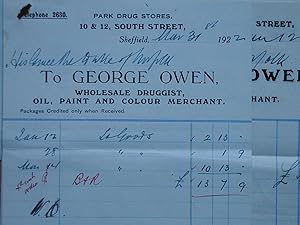 Telephone 2680.
PARK DRUG STORES,
10 & 12, SOUTH STREET,
Sheffield, Mar 31 1922
His Grace the Duke of Norfolk
To GEORGE OWEN,
WHOLESALE DRUGGIST,
OIL, PAINT AND COLOUR MERCHANT.
Packages Credited only when Received.
Jan 12 To Goods 2 13 -
28 " " 1 9
Mar " " 10 13 -
B&R £ 13 7 9
STREET,
OWEN
MERCHANT.
£